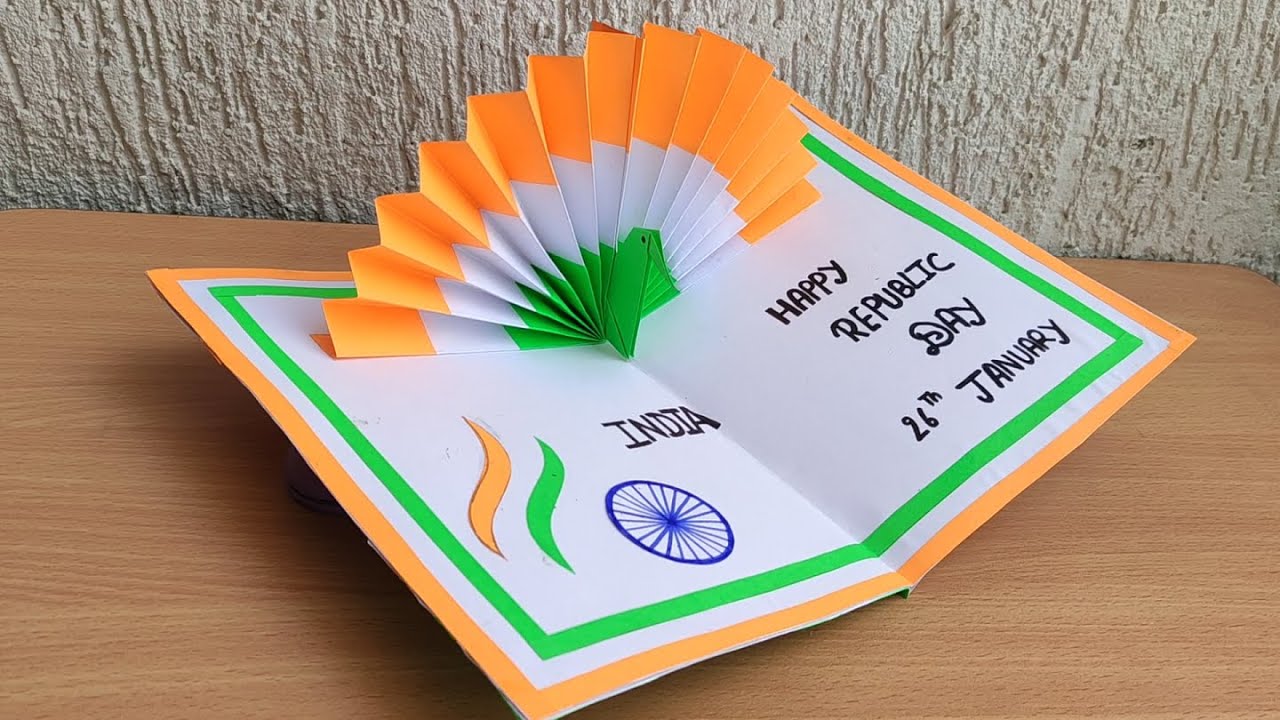 INDIA
HAPPY
REPUBLIC
DAY
26th JANUARY